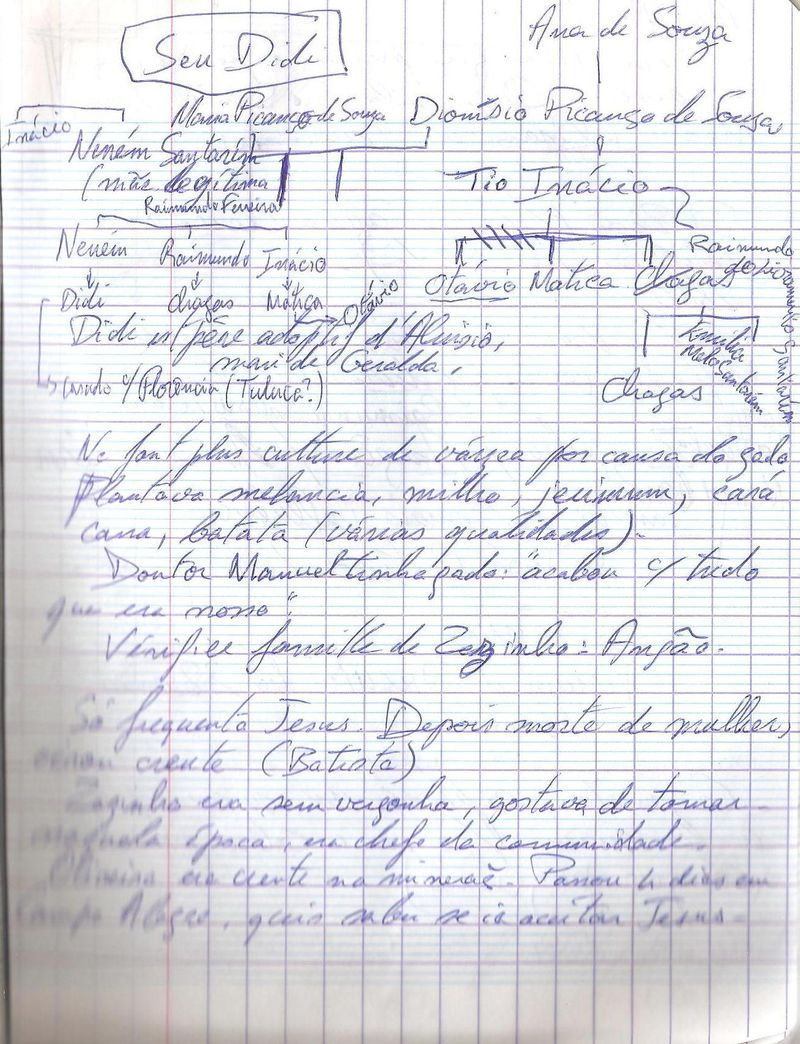 Seu Didi
Ana de Souza
Inácio
Maria Picanço de Souza
Dionísio Picanço de Souza
Neném Santarém
(mãe legítima
Raimundo Ferreira
Tio Inácio
Neném Raimundo Inácio
Raimundo
Didi Chagas Matica Otávio
Otávio Matica Chagas
Didi est père adoptif d'Aluisio,
mari de Geralda,
casado c/ Florência (Tuluca?)
Emilia
Melo Santarém
Chagas
Ne font plus culture de várzea por causa do gado
Plantava melancia, milho, jerimum, cará
cana, batata (várias qualidades).
Doutor Manuel tinha gado: "acabou c/ tudo
que era nosso".
Vérifier famille de Zezinho: Angão.
Só frequenta Jesus. Depois morte de mulher,
virou crente (Batista)
Zezinho era sem vergonha, gostava de tomar
naquela época, era chefe da comunidade.
Oliveira era crente na . Passou 4 dias em
Campo Alegre, quis saber se ia aceitar Jesus.